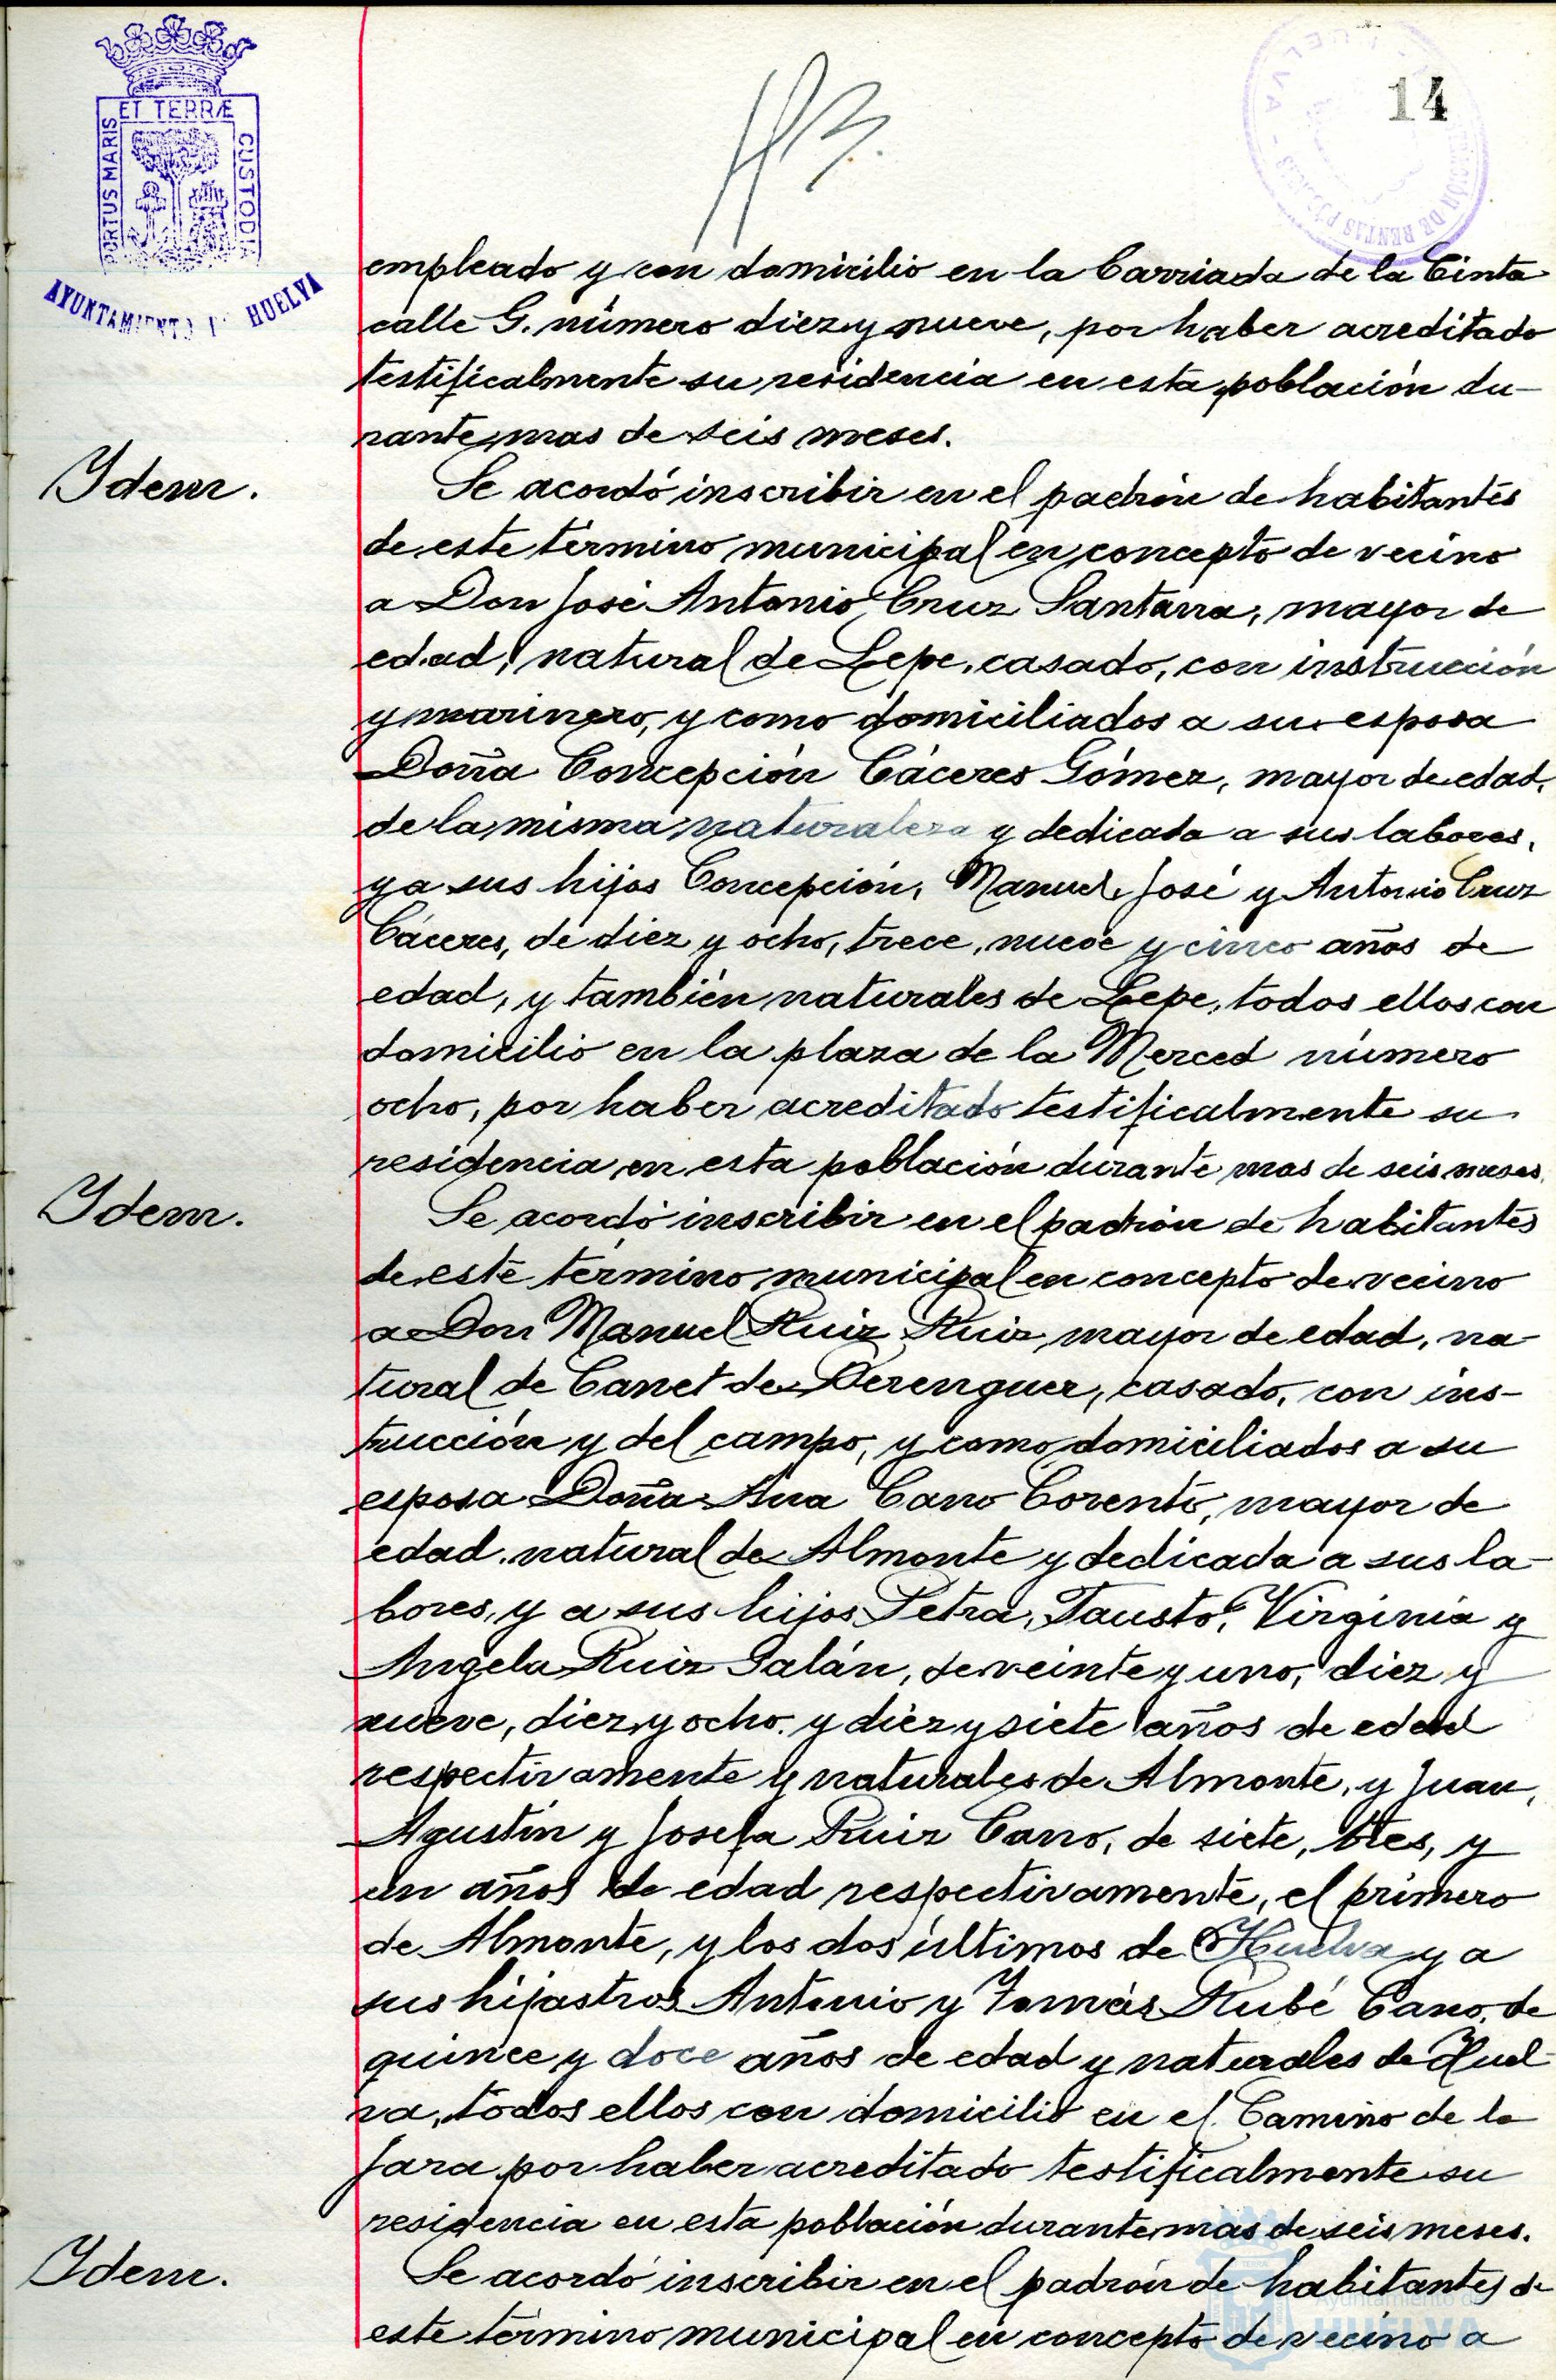 14
ET TERRÆ
PORTUS MARIS
CUSTODIA
AYUNTAMIENTO HUELVA
empleado y con domicilio en la barriada de la Cinta
calle G. número diez y nueve, por haber acreditado
testificalmente su residencia en esta población du-
rante mas de seis meses.
Ydem.
Se acordó inscribir en el padrón de habitantes
de este término municipal en concepto de vecino
a Don José Antonio Cruz Santana, mayor de
edad, natural de Lepe, casado, con instrucción
y marinero, y como domiciliados a su esposa
Doña Concepción Cáceres Gómez, mayor de edad,
de la misma naturaleza y dedicada a sus labores,
y a sus hijos Concepción, Manuel, José y Antonio Cruz
Cáceres, de diez y ocho, trece, nueve y cinco años de
edad, y también naturales de Lepe, todos ellos con
domicilio en la plaza de la Merced número
ocho, por haber acreditado testificalmente su
residencia en esta población durante mas de seis meses.
Ydem.
Se acordó inscribir en el padrón de habitantes
de este término municipal en concepto de vecino
a Don Manuel Ruiz Ruiz mayor de edad, na-
tural de Canet de Berenguer, casado, con ins-
trucción y del campo, y como domiciliados a su
esposa Doña Ana Cano Corento, mayor de
edad, natural de Almonte y dedicada a sus la-
bores, y a sus hijos Petra, Fausto, Virginia y
Angela Ruiz Galán, de veinte y uno, diez y
nueve, diez y ocho y diez y siete años de edad
respectivamente y naturales de Almonte, y Juan,
Agustín y Josefa Ruiz Cano, de siete, tres, y
un años de edad respectivamente, el primero
de Almonte, y los dos últimos de Huelva y a
sus hijastros Antonio y Tomás Rubé Cano, de
quince y doce años de edad y naturales de Huel-
va, todos ellos con domicilio en el Camino de la
Jara por haber acreditado testificalmente su
residencia en esta población durante mas de seis meses.
Ydem.
Se acordó inscribir en el padrón de habitantes de
este término municipal en concepto de vecino a
Ayuntamiento de
HUELVA